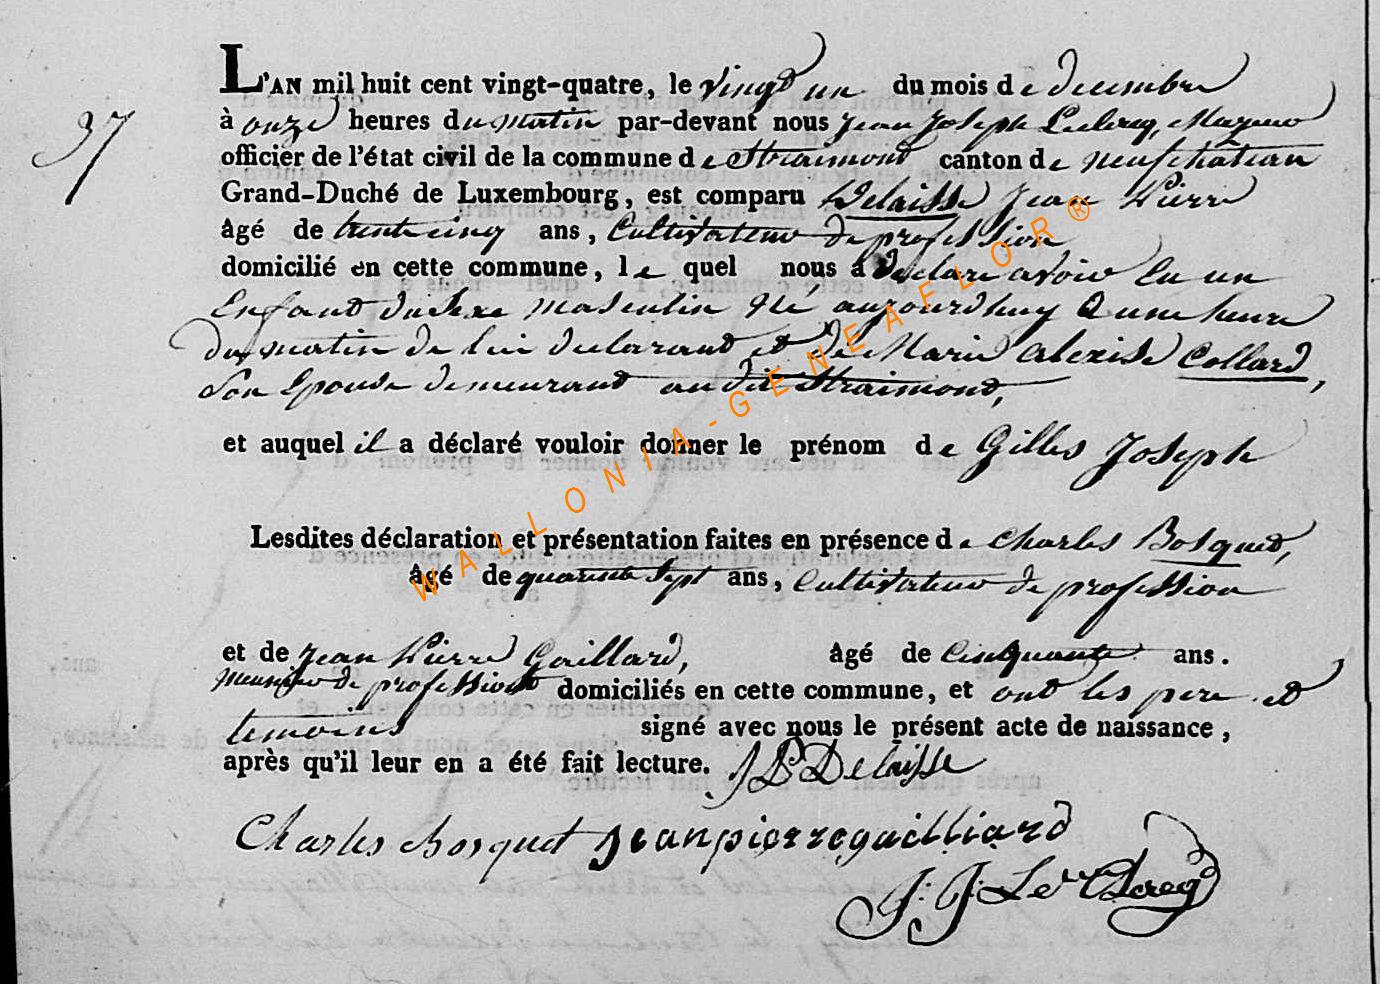 37
L'AN mil huit cent vingt-quatre, le vingt un du mois de decembre
à onze heures du matin par-devant nous jean Joseph Leclercq, Mayeur
officier de l'état civil de la commune de Straimont canton de neufchâteau
Grand-Duché de Luxembourg, est comparu Delaisse Jean Pierre
âgé de trente cinq ans, Cultivateur de profession
domicilié en cette commune, le quel nous a declare avoir eu un
Enfant du Sexe masculin Né aujourdhuy a une heure
du matin de lui declarant et de Marie alexise Collard
Son Epouse demeurant au dit Straimont,
et auquel il a déclaré vouloir donner le prénom de Gilles Joseph
Lesdites déclaration et présentation faites en présence de Charles Bosquet,
âgé de quarante Sept ans, Cultivateur de profession
et de jean Pierre Gaillard, âgé de Cinquante ans.
meunier de profession domiciliés en cette commune, et ont les pere et
temoins signé avec nous le présent acte de naissance,
après qu'il leur en a été fait lecture. JP Delaisse
Charles bosquet Jeanpierregailliard
J: J: Le Clercq
WALLONIA-GENEAFLOR®